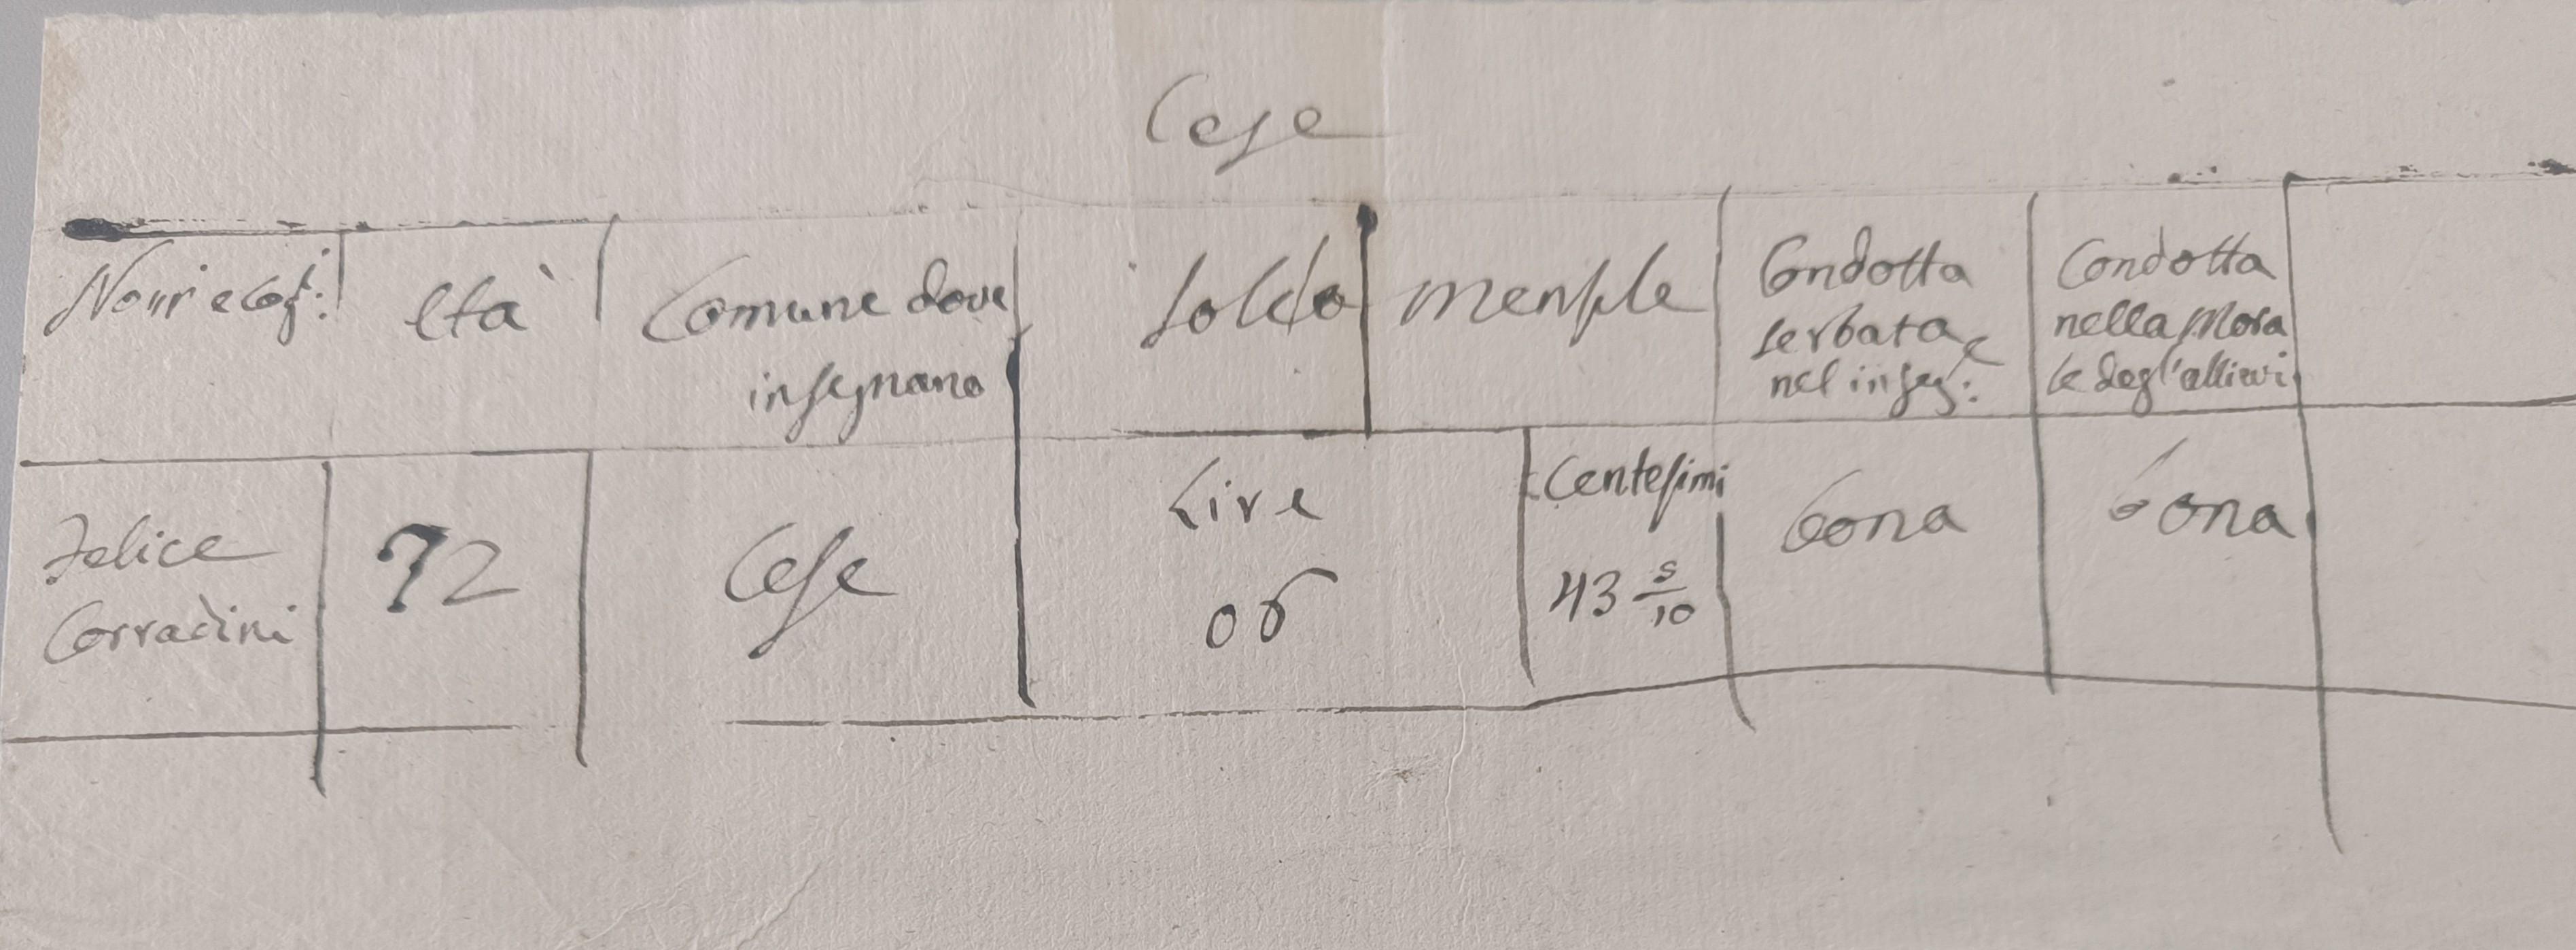 Cese
Nomi e cog: Età Comune dove insegnano Soldo mensile Condotta serbata nel inseg: Condotta nella morale degl'allievi
Felice Corradini 72 Cese Lire 06 Centesimi 43 5/10 bona bona